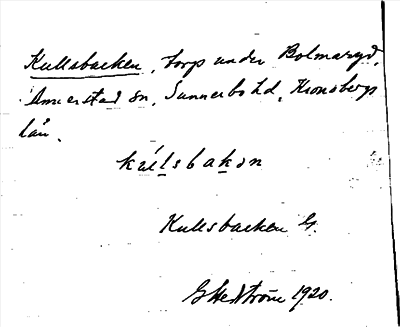 Kullsbacken, torp under Bolmaryd,
Annerstad sn, Sunnerbo hd, Kronobergs
län.
kúlsbakən
Kullsbacken G.
G Hedström 1920.